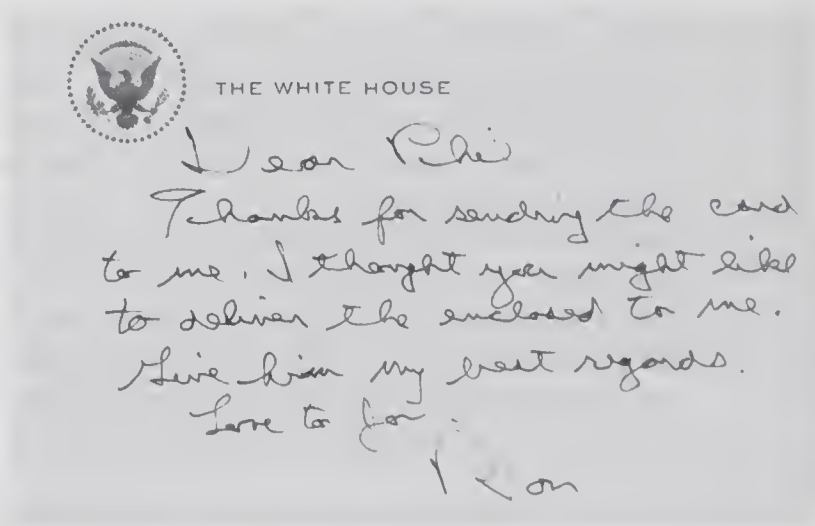 THE WHITE HOUSE
Dear Phil
Thanks for sending the card
to me. I thought you might like
to deliver the enclosed to me.
Give him my best regards.
Love to
Ron